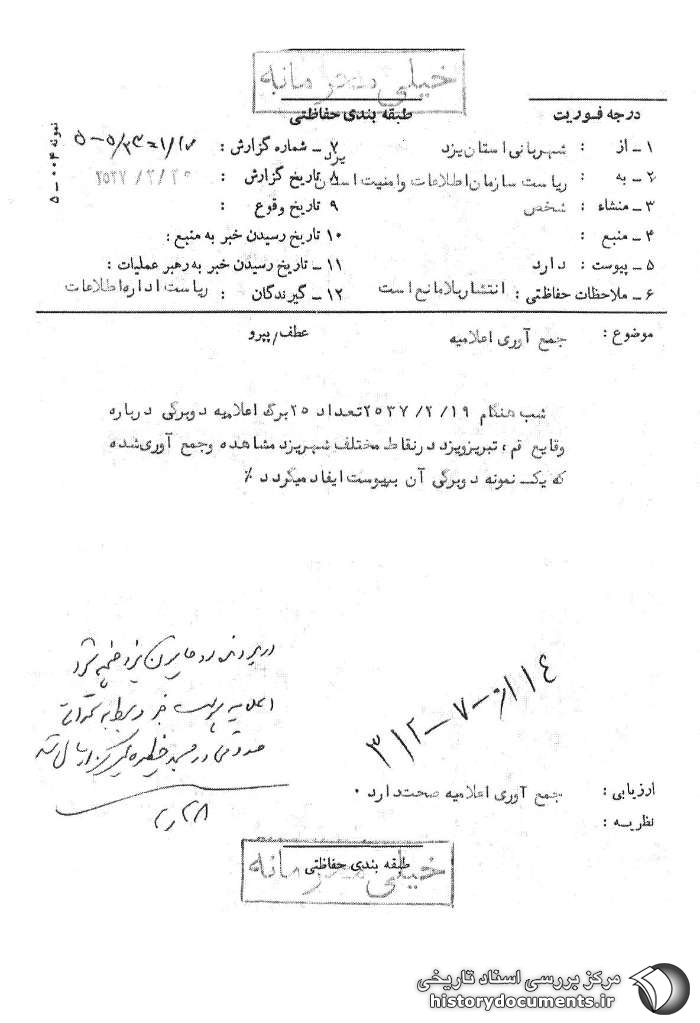 خیلی محرمانه
درجه فوریت
طبقه بندی حفاظتی
نمونه ۰۰۴ – ۵
۱ – از : شهربانی استان یزد
۲ – به : ریاست سازمان اطلاعات وامنیت استان یزد
۳ – منشاء : شخص
۴ – منبع :
۵ – پیوست : دارد
۶ – ملاحظات حفاظتی : انتشاربلامانع است
۷ – شماره گزارش :
۸ تاریخ گزارش : ۲۵۳۷/۲/۲۹
۹ تاریخ وقوع :
۱۰ تاریخ رسیدن خبر به منبع :
۱۱ – تاریخ رسیدن خبر به رهبر عملیات :
۱۲ – گیرندگان : ریاست اداره اطلاعات
موضوع : جمع آوری اعلامیه
عطف/پیرو
شب هنگام ۲۵۳۷/۲/۱۹ تعداد ۲۵ برگ اعلامیه دوبرگی درباره
وقایع قم ، تبریزویزد درنقاط مختلف شهریزد مشاهده وجمع آوری شده
که یک نمونه دوبرگی آن بپیوست ایفاد میگردد ٪
در پرونده روحانیون یزد ضمیمه شود
اعلامیه
در مسجد حظیره
۳۱۲ – ۷ – ۱۱۴
ارزیابی : جمع آوری اعلامیه صحت دارد .
نظریه :
طبقه بندی حفاظتی
خیلی محرمانه
مرکز بررسی اسناد تاریخی
historydocuments.ir